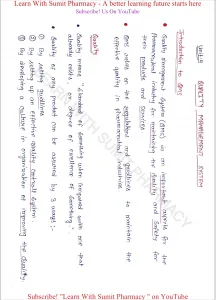 Learn With Sumit Pharmacy - A better learning future starts here
Subscribe! Us On YouTube
Unit-I QUALITY MANAGEMENT SYSTEM
Introduction to QMS
Quality management System (QMS) is an important aspects for the
Pharmaceutical industry for maintaining the Quality and Safety for
their products and services.
QMS works on the regulations and guidelines to maintain the
effective quality in pharmaceutical industries.
Quality
Quality means "standard of something when compared with one that
already exists" or "degree of excellence of something."
Quality of any product can be assured by 3 ways:-
① By setting guidelines
② By setting up an effective Quality Control system.
③ By developing a culture in organization of improving the quality
LEARN WITH SUMIT PHARMACY
Subscribe! "Learn With Sumit Pharmacy" on YouTube